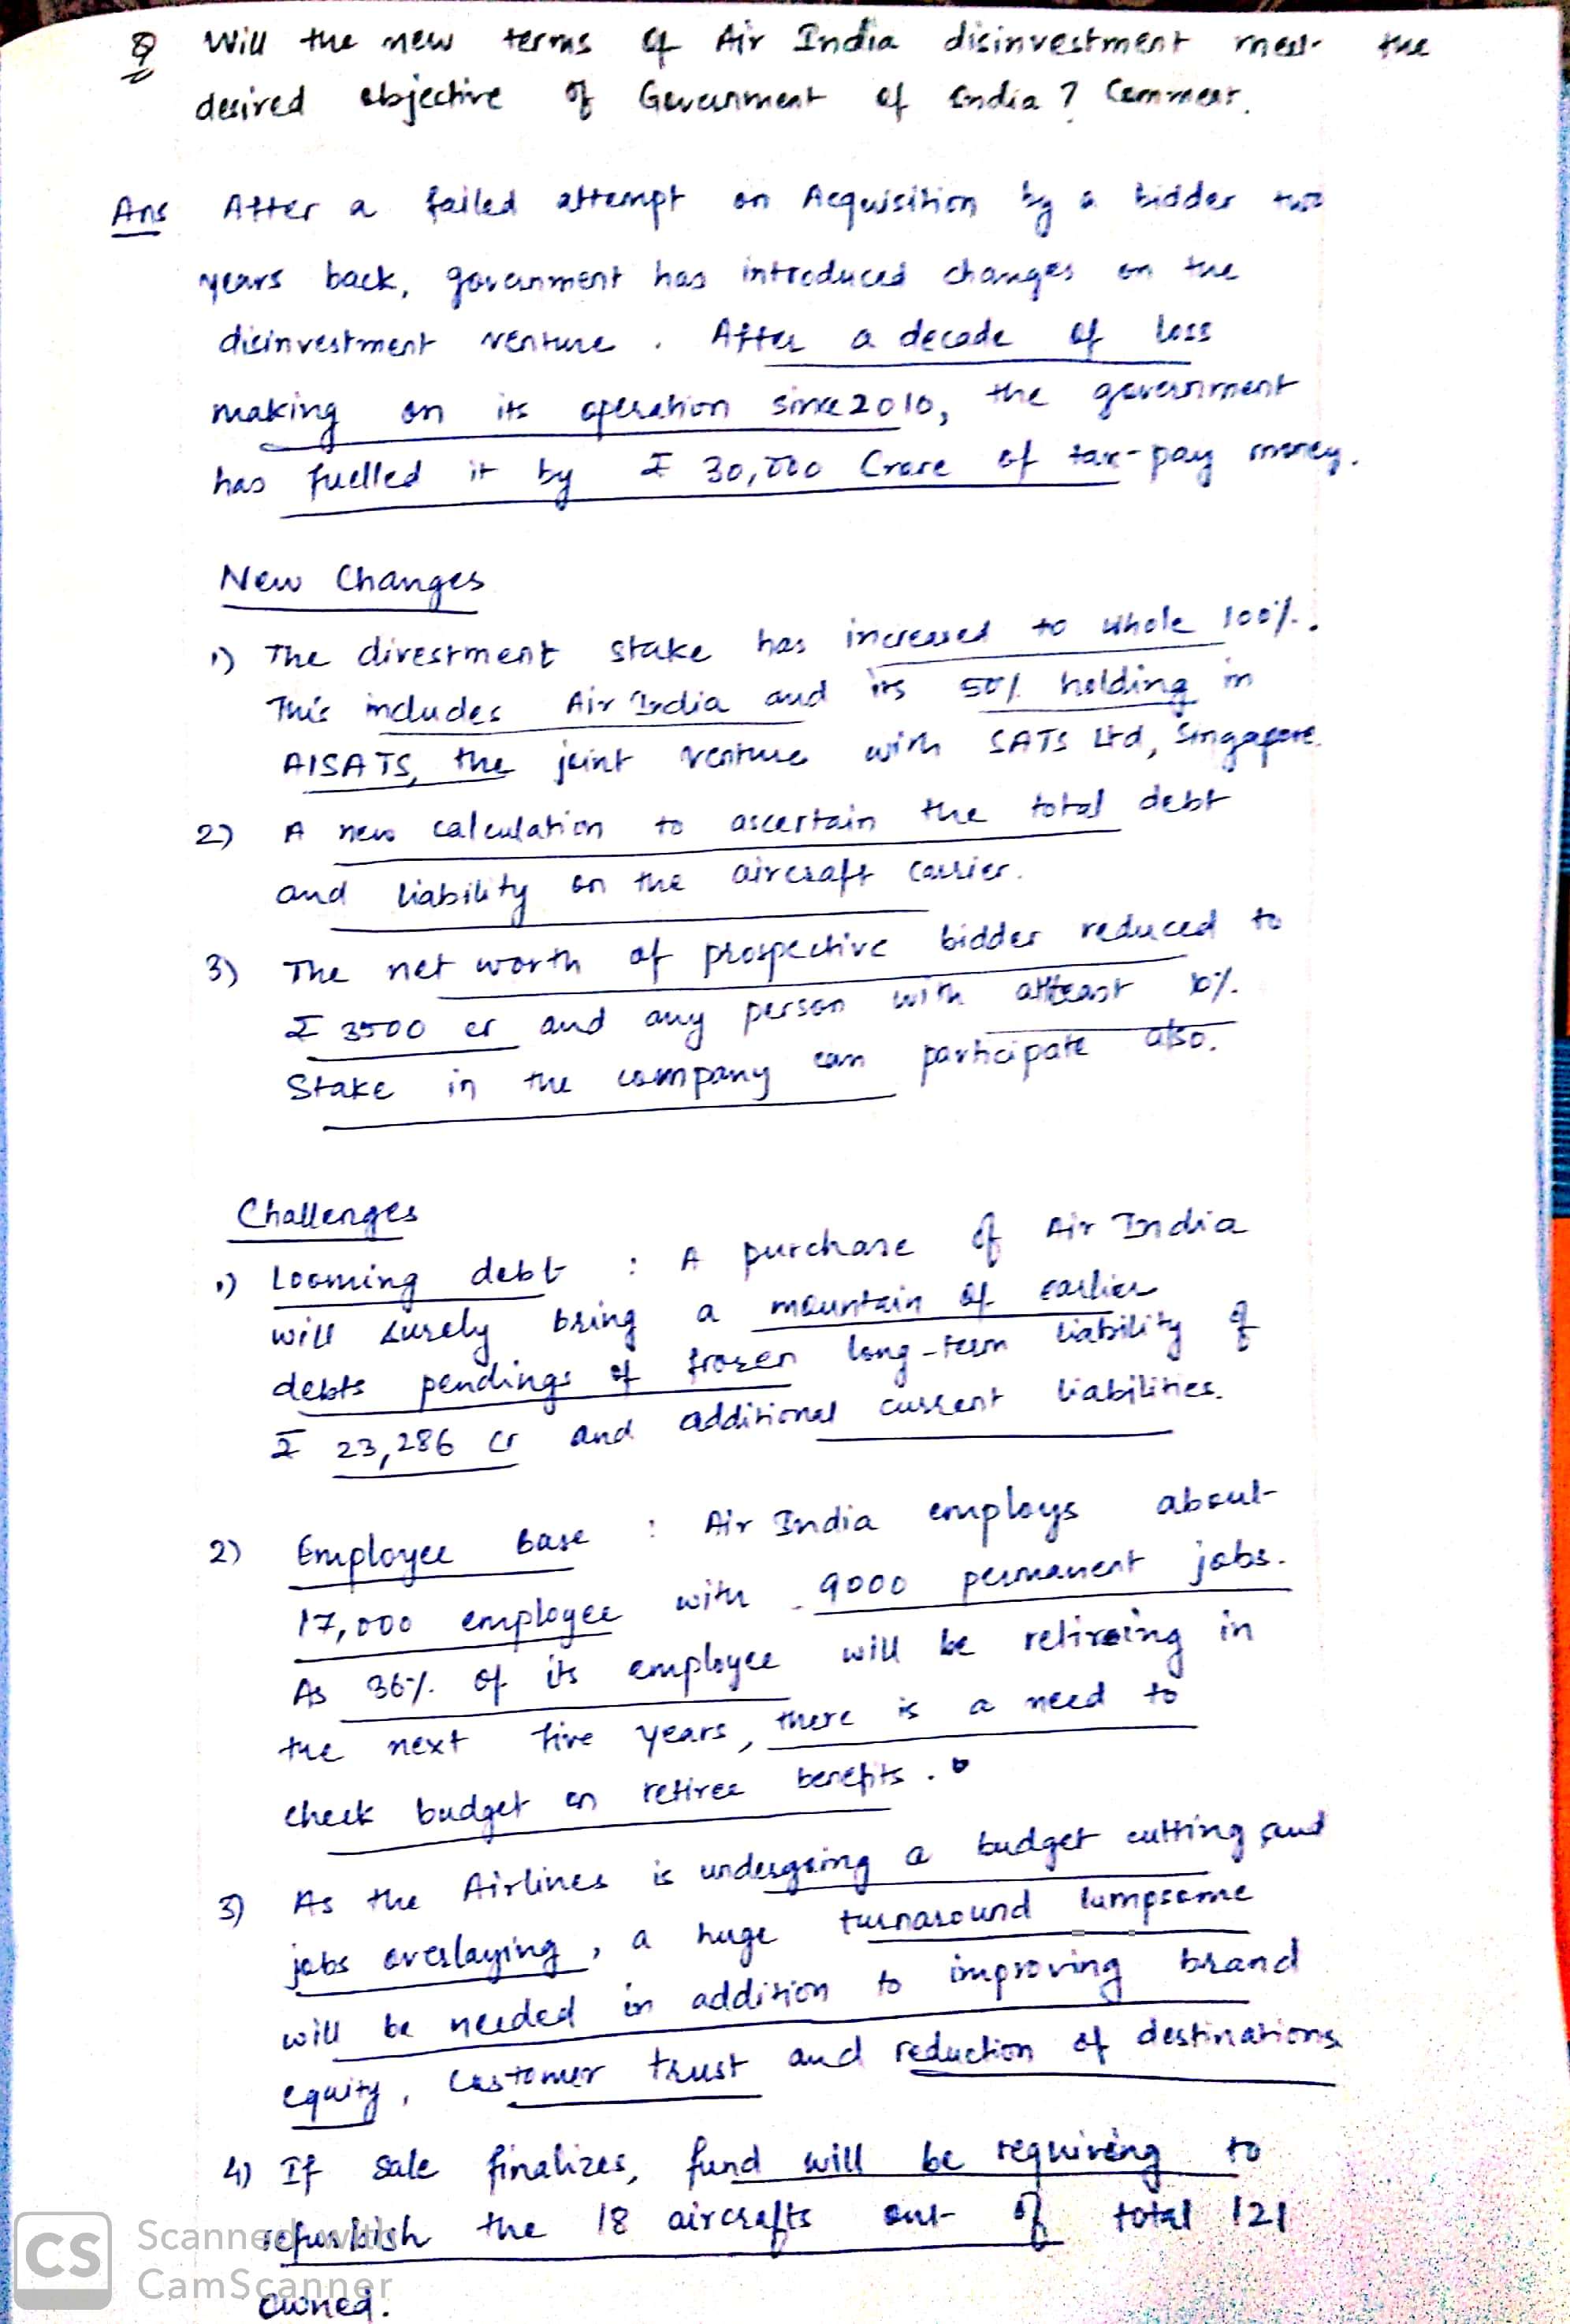 Q Will the new terms of Air India disinvestment meet the
desired objective of Government of India ? Comment.
Ans After a failed attempt on Acquisition by a bidder two
years back, government has introduced changes on the
disinvestment venture . After a decade of loss
making on its operation since 2010, the government
has fuelled it by ₹ 30,000 Crore of tax-pay money.
New Changes
1) The divestment stake has increased to whole 100%.
This includes Air India and its 50% holding in
AISATS, the joint venture with SATS Ltd, Singapore.
2) A new calculation to ascertain the total debt
and liability on the aircraft carrier.
3) The net worth of prospective bidder reduced to
₹ 3500 cr and any person with atleast 10%
Stake in the company can participate also.
Challenges
1) Looming debt : A purchase of Air India
will surely bring a mountain of earlier
debts pendings of frozen long-term liability of
₹ 23,286 cr and additional current liabilities.
2) Employee base : Air India employs about
17,000 employee with 9000 permanent jobs.
As 36% of its employee will be retireing in
the next five years, there is a need to
check budget on retiree benefits .
3) As the Airlines is undergoing a budget cutting and
jobs overlaying, a huge turnaround lumpsome
will be needed in addition to improving brand
equity, customer trust and reduction of destinations.
4) If sale finalizes, fund will be requiring to
refurbish the 18 aircrafts out of total 121
owned.
CS Scanned with
CamScanner